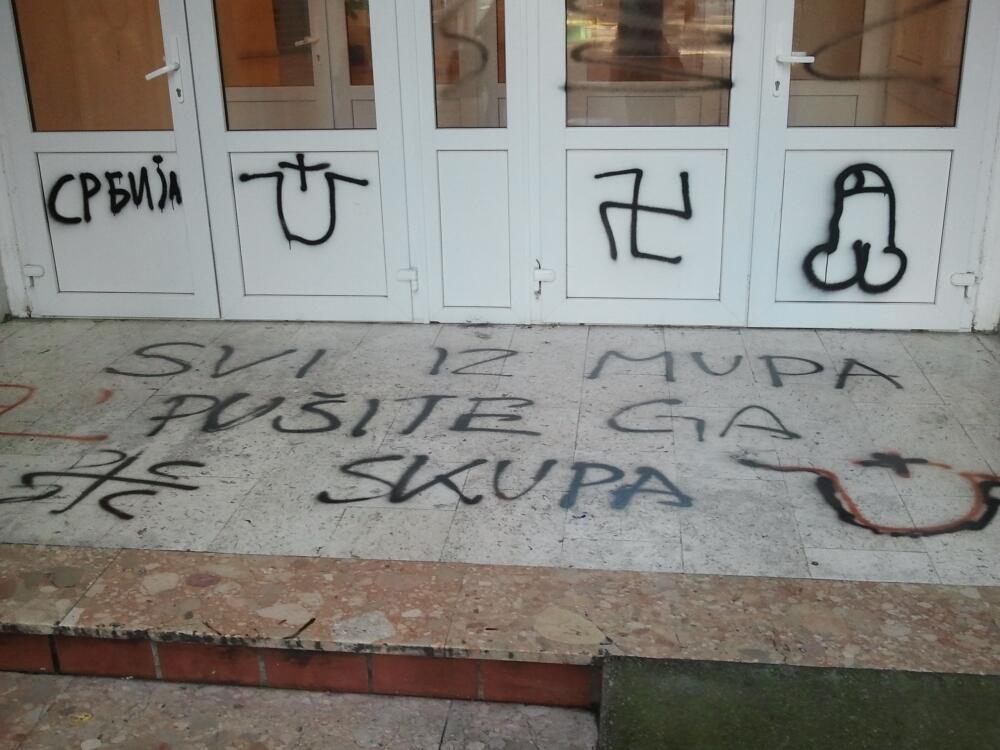 СРБИЈА
SVI IZ MUPA
PUŠITE GA
SKUPA